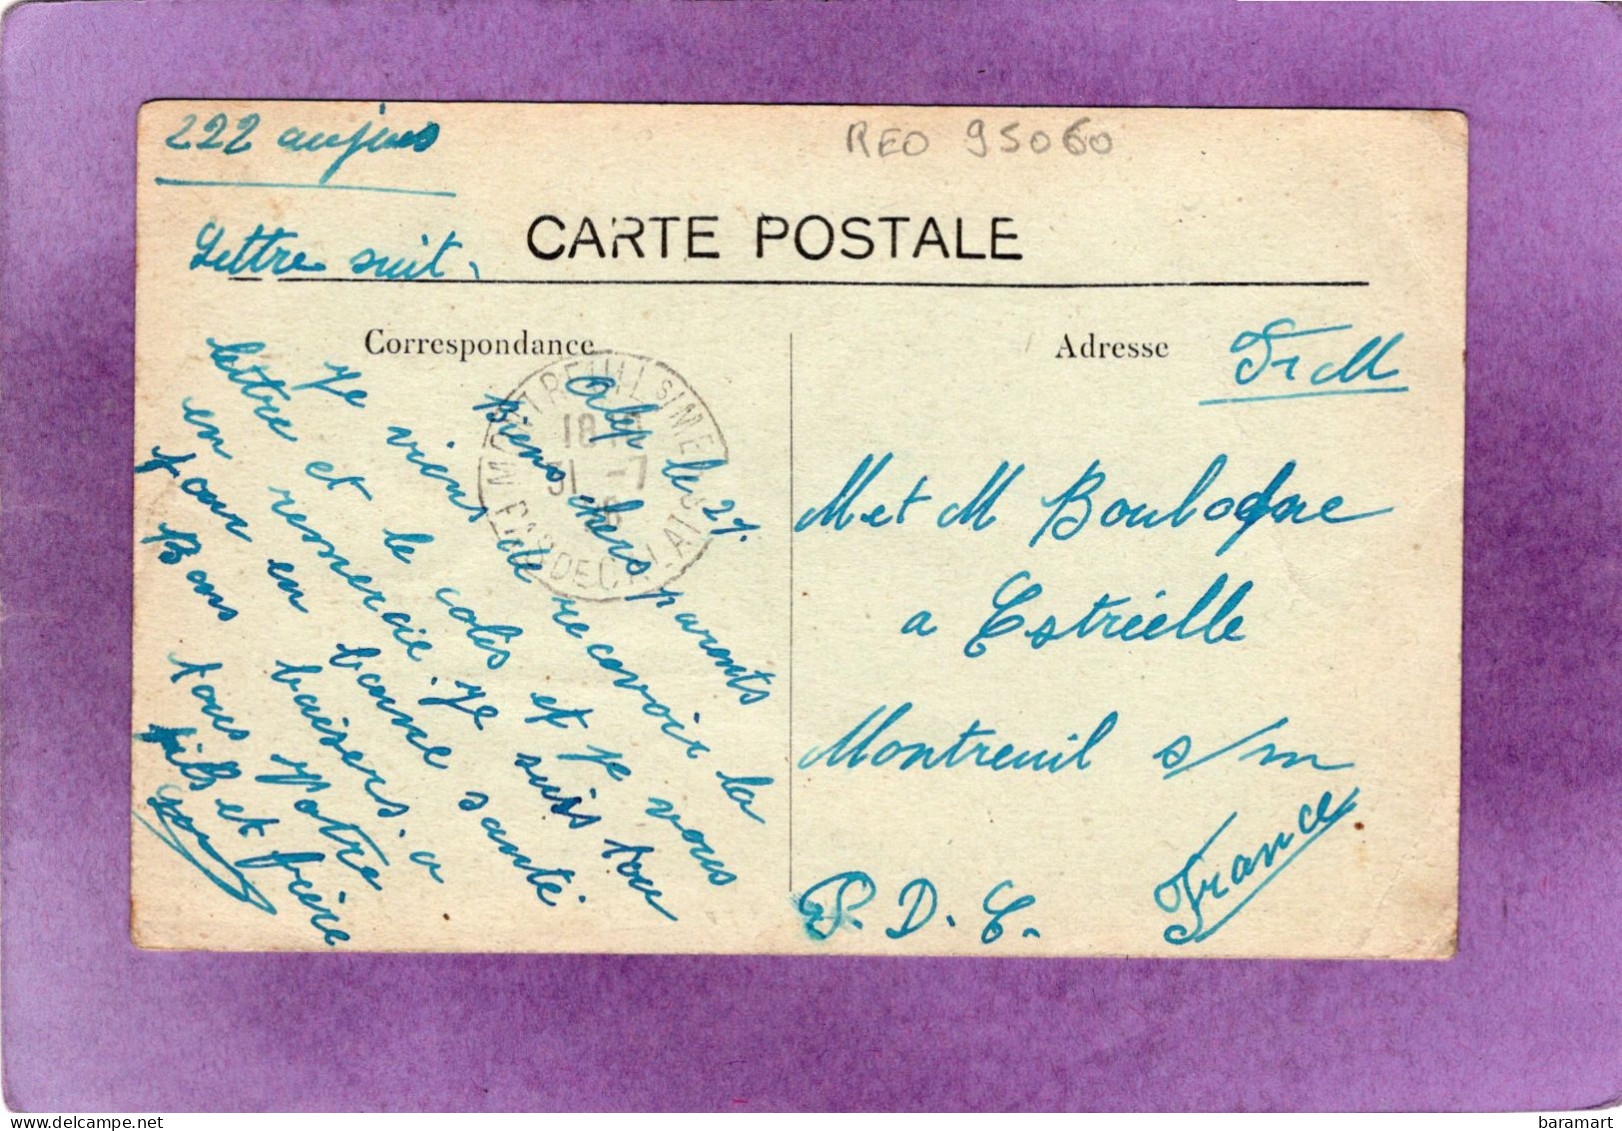 222 aujus
REO 95060
CARTE POSTALE
Lettre suit.
Correspondance
Adresse
Fr M
Alep le 27.
Biens chers parents
Je viens de recevoir la
lettre et le colis et je vous
en remercie. Je suis tou
jour en bonne santé.
Bons baisers a
tous Votre
fils et frère
MONTREUIL S/MER
31 -7
PAS DE CALAIS
M et M Boulogne
a Estréelle
Montreuil s/m
P. D. C.
France
baramart